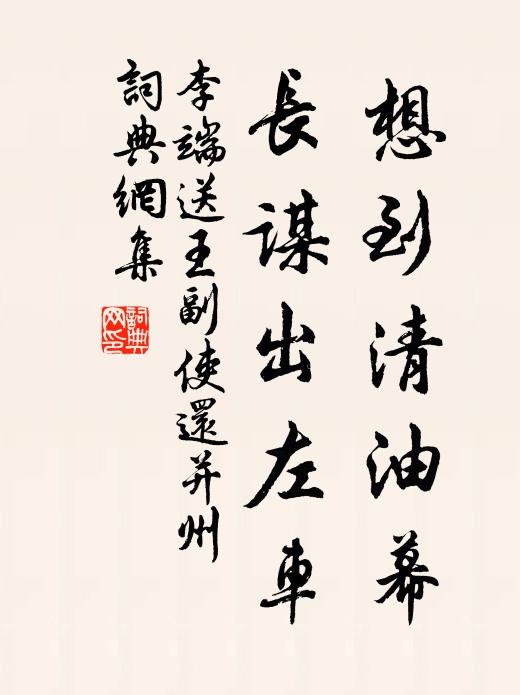 想到清油幕
長謀出左車
李端送王副使還并州
詞典網集
詞典網印